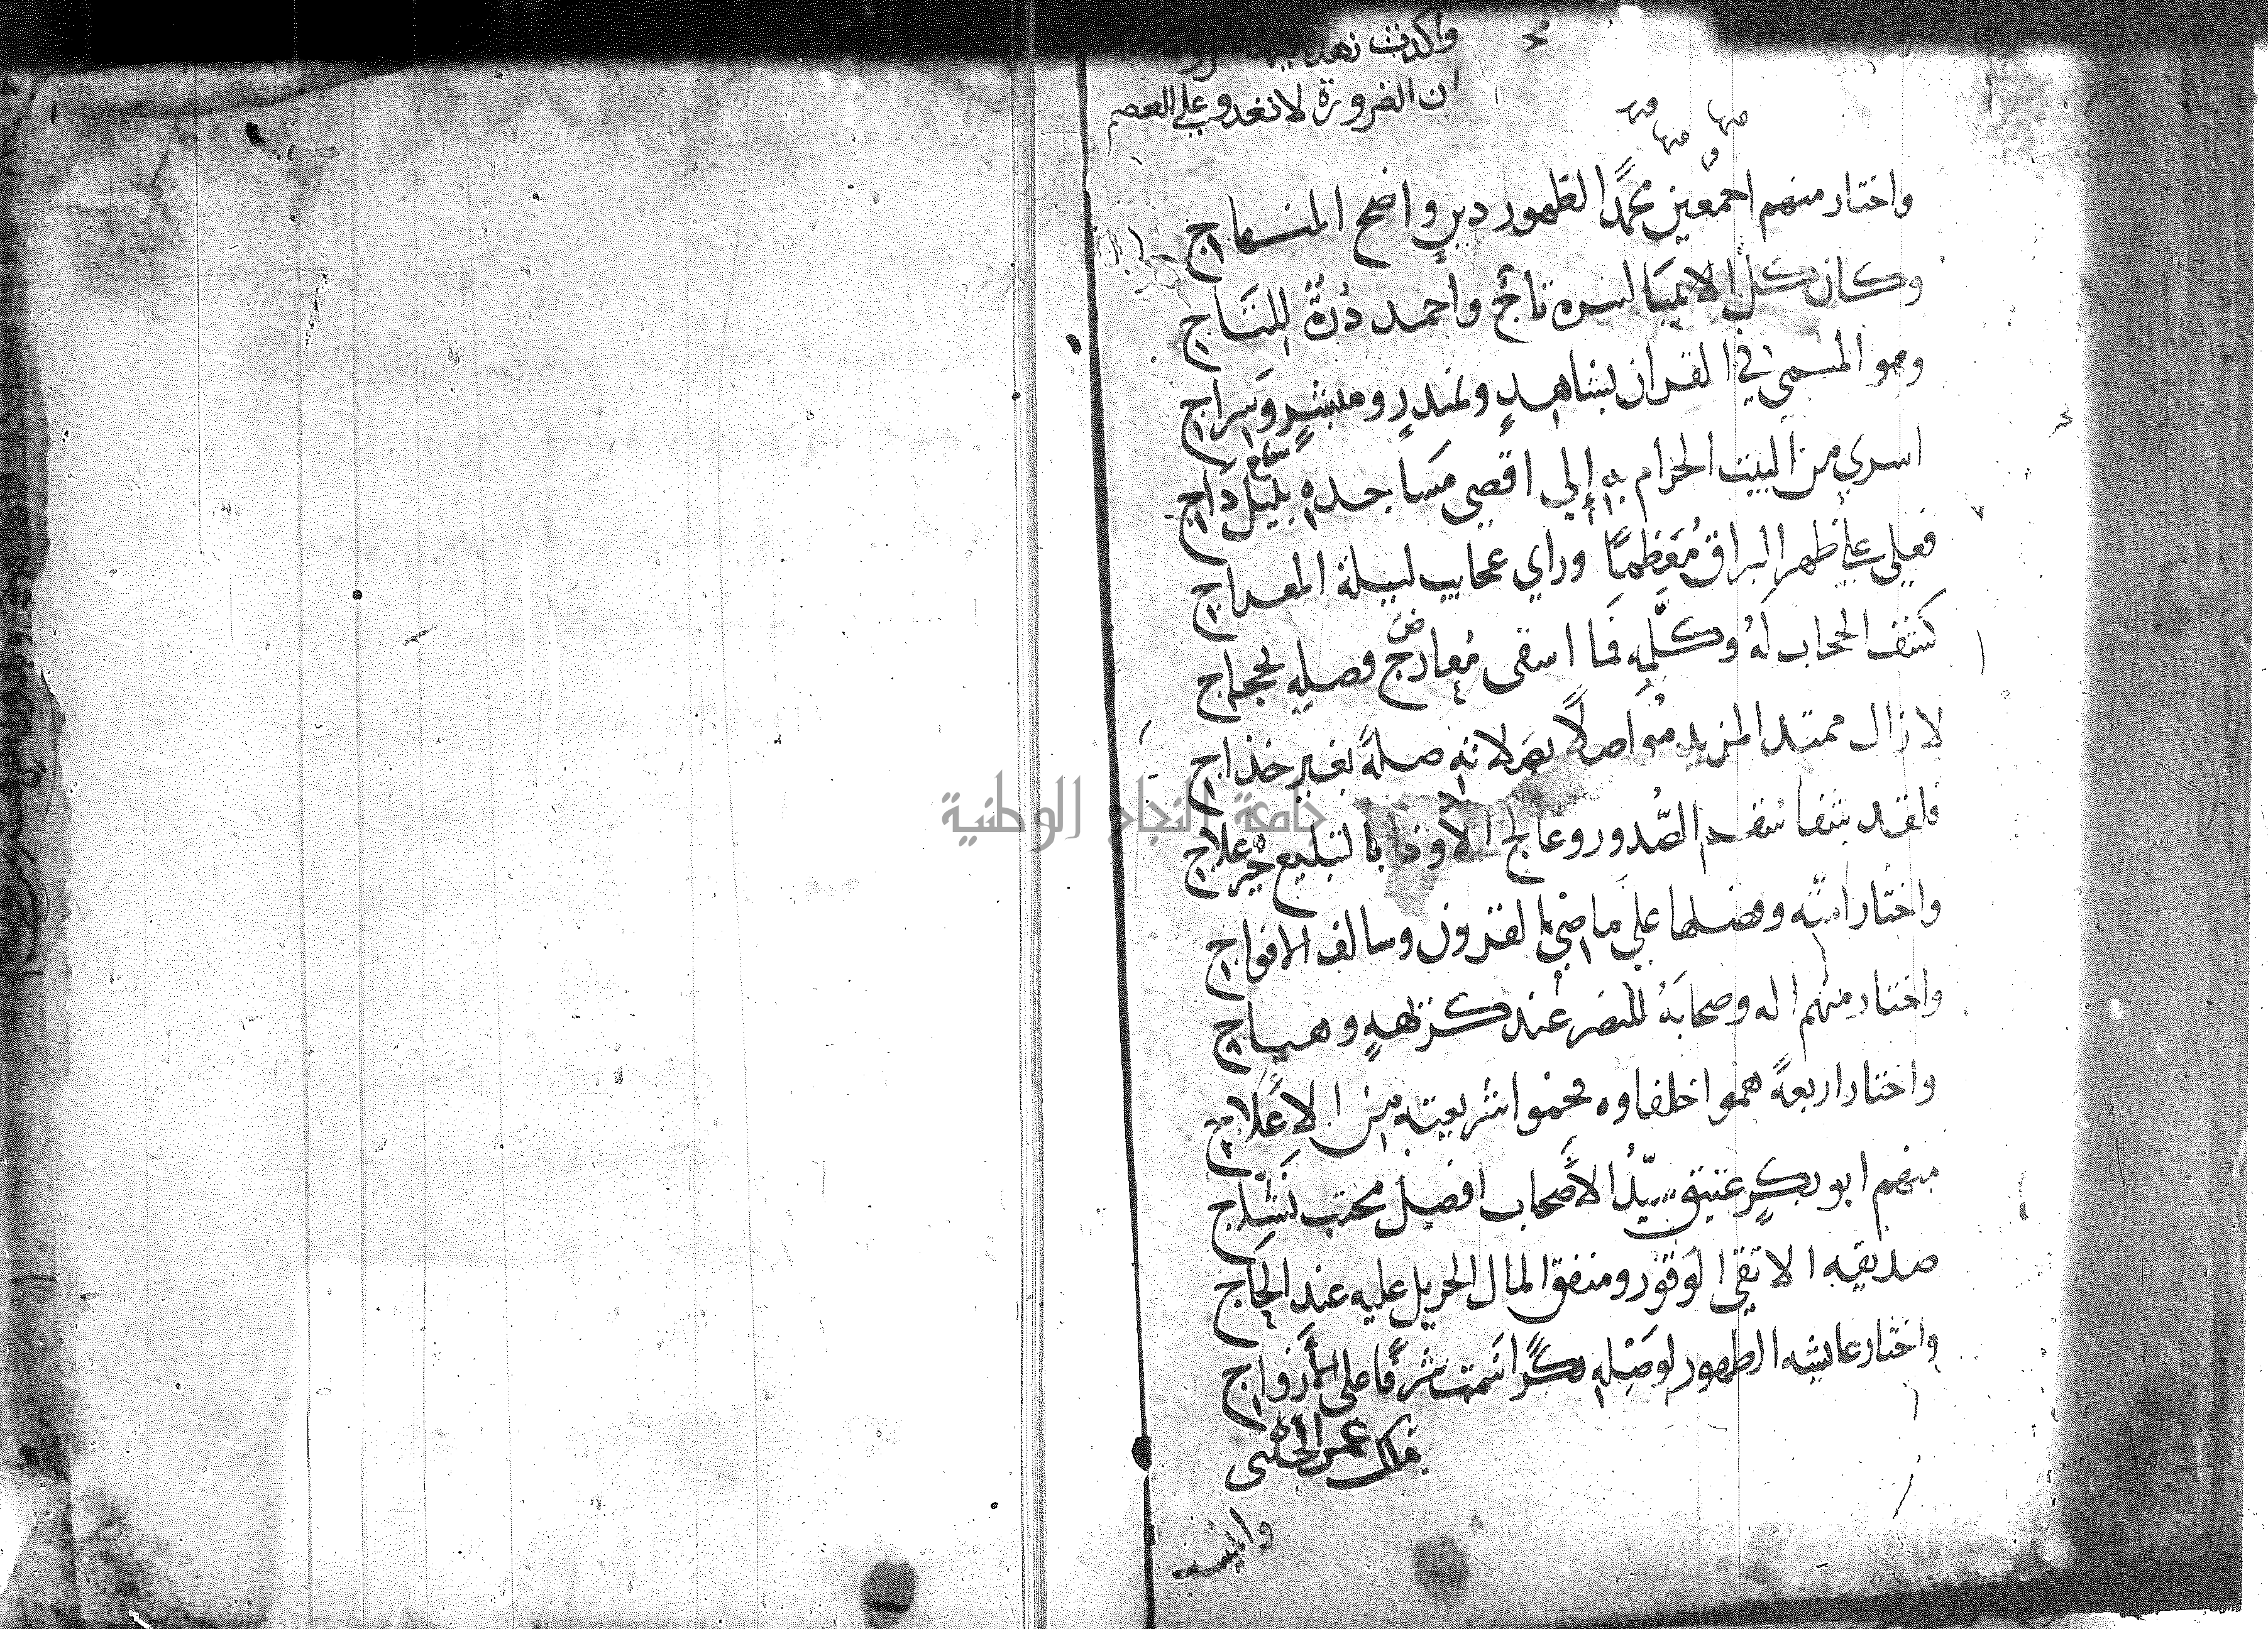 واكدت زهده فيها ضرورته
ان الضرورة لا تعدو على العصم
منها
منها
منها
واختار منهم اجمعين محمدًا لظهور دين واضح المنهاج
وكان كل الانبيا لسره تاج واحمد درة للتاج
وهو المسمى في القران بشاهدٍ ومنذرٍ ومبشرٍ وسراج
اسري من البيت الحرام به إلى اقصى مساجده بليل داج
فعلى على ظهر البراق مُعَظمًا وراي عجايب ليلة المعراج
كشف الحجاب لهُ وكلّمه فما
لا زال ممتد المزيد مُواصلاً بصَلاته صلةً بغير خداج
فلقد شفا سقم الصُّدور وعالج بالتبليغ خير علاج
واختار امته وفضلها على ماضي القرون وسالف الافواج
واختار منهم اله وصحابَهُ للنصر عند كريهةٍ وهياج
واختار اربعةً همو اخلفاوه محموا شريعته من الاعلاج
منهم ابو بكرٍ عتيق سيّدُ الأصحاب افضل
صديقه الاتقى الوقور ومنفق المال الجزيل عليه عند الحاج
واختار عايشه الطهور لوصله بكرًا سمت شرفًا على الأزواج
وانيسه
جامعة النجاح الوطنية